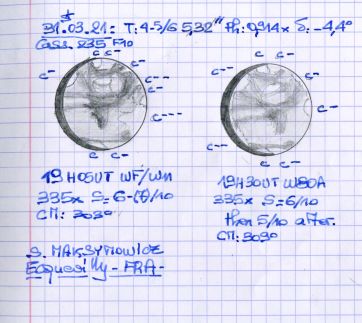 31.03.21: T: 4-5/6 5,32" Ph: 0,914 x δ: -4,4°
Cass. 235 F10
C- C- C- C-
C- C- C-- C--
C--- C---
C C- C C-
19H05UT WF/Wn 19H30UT W80A
335x S=6-(7)/10 335x S=6/10
CM: 303° then 5/10 after.
CM: 309°
S. MAKSYMOWICZ
Ecquevilly - FRA -